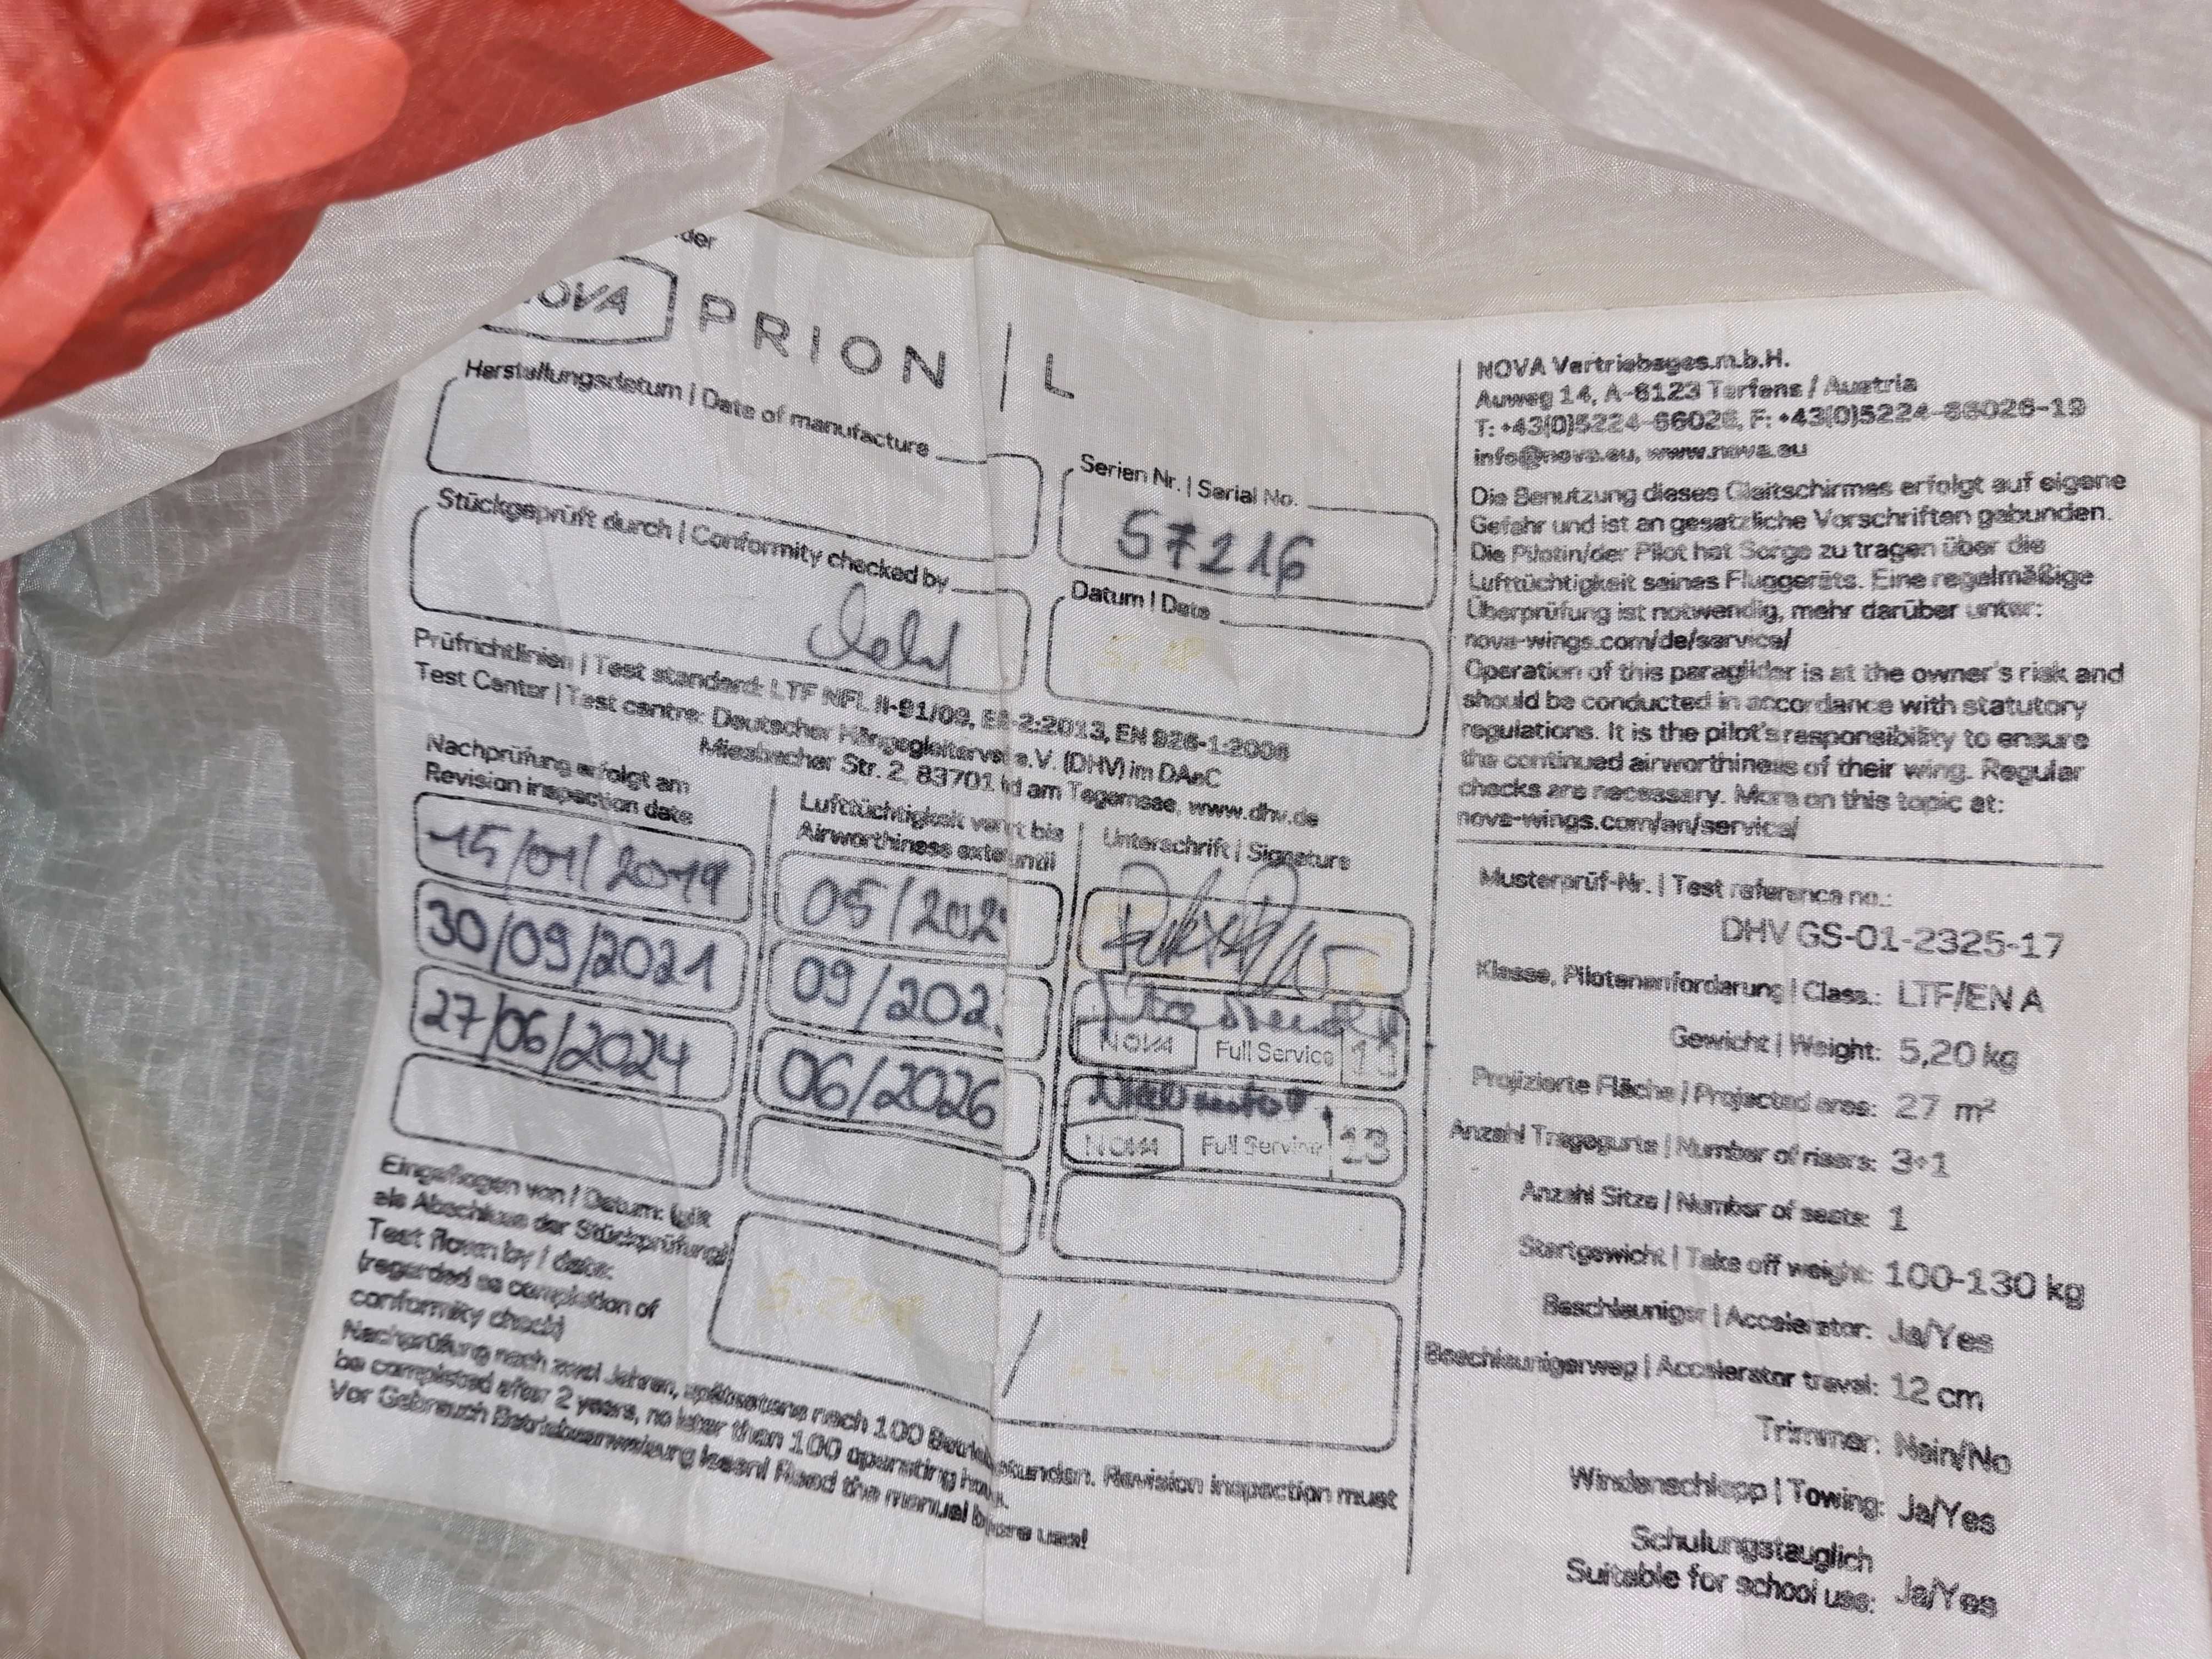 PRION | L
Herstellungsdatum | Date of manufacture
Serien Nr. | Serial No.
57216
Stückgeprüft durch | Conformity checked by
Datum | Date
Prüfrichtlinien | Test standard: LTF NFL II-91/09, EN 926-1:2006
Test Center | Test centre: Deutscher e.V. (DHV) im DAeC
Miesbacher Str. 2, 83701 am Tegernsee, www.dhv.de
Nachprüfung erfolgt am
Revision inspection date
Lufttüchtigkeit bis
Airworthiness until
Unterschrift | Signature
15/01/2019
05/202
30/09/2021
09/202
NOVA Full Service
27/06/2024
06/2026
NOVA Full Service 13
Eingeflogen von | Datum: (gilt
als Abschluss der Stückprüfung)
Test flown by | date:
(regarded as completion of
conformity check)
/
Nachprüfung nach zwei Jahren, spätestens nach 100 Revision inspection must
be completed after 2 years, no later than 100 operating
Vor Gebrauch Betriebsanweisung lesen! Read the manual use!
NOVA Vertriebsges.m.b.H.
Auweg 14, A-6123 Terfens / Austria
T: +43(0)5224-66026, F: +43(0)5224-66026-19
info@nova.eu, www.nova.eu
Die Benutzung dieses Gleitschirmes erfolgt auf eigene
Gefahr und ist an gesetzliche Vorschriften gebunden.
Die Pilotin/der Pilot hat Sorge zu tragen über die
Lufttüchtigkeit seines Fluggeräts. Eine regelmäßige
Überprüfung ist notwendig, mehr darüber unter:
nova-wings.com/de/service/
Operation of this paraglider is at the owner's risk and
should be conducted in accordance with statutory
regulations. It is the pilot's responsibility to ensure
the continued airworthiness of their wing. Regular
checks are necessary. More on this topic at:
nova-wings.com/en/service/
Musterprüf-Nr. | Test reference no.:
DHV GS-01-2325-17
Klasse, Pilotenanforderung | Class.: LTF/EN A
Gewicht | Weight: 5,20 kg
Projizierte Fläche | Projected area: 27 m²
Anzahl Tragegurte | Number of risers: 3+1
Anzahl Sitze | Number of seats: 1
Startgewicht | Take off weight: 100-130 kg
Beschleuniger | Accelerator: Ja/Yes
Beschleunigerweg | Accelerator travel: 12 cm
Trimmer: Nein/No
Windenschlepp | Towing: Ja/Yes
Schulungstauglich
Suitable for school use: Ja/Yes